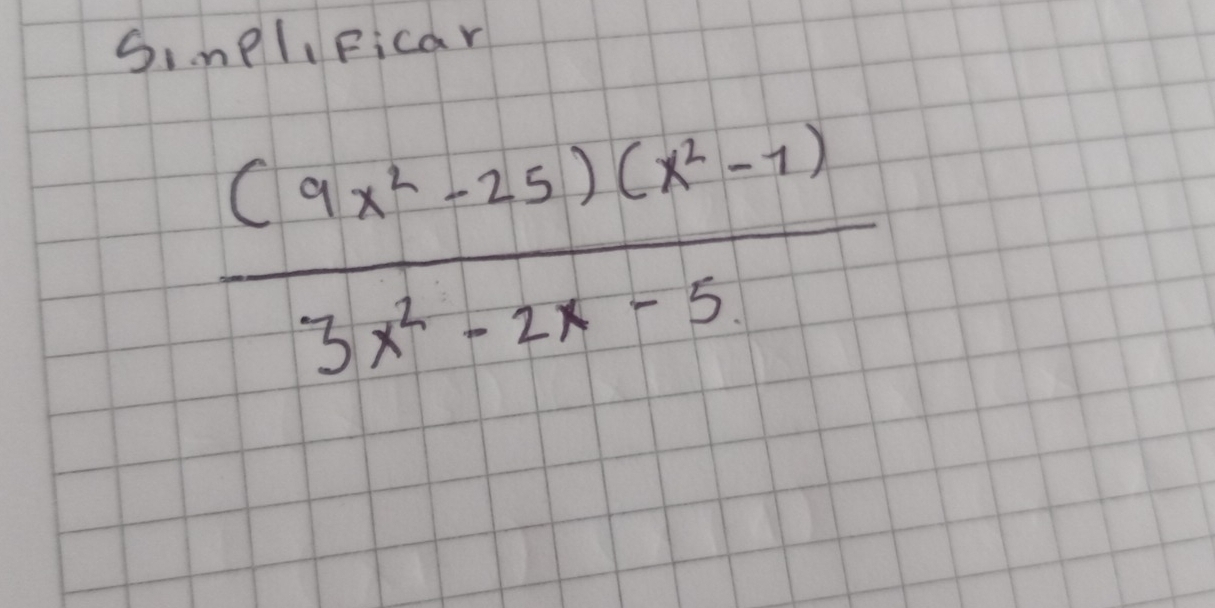 Simplificar
(9x² - 25)(x² - 1)
3x² - 2x - 5.